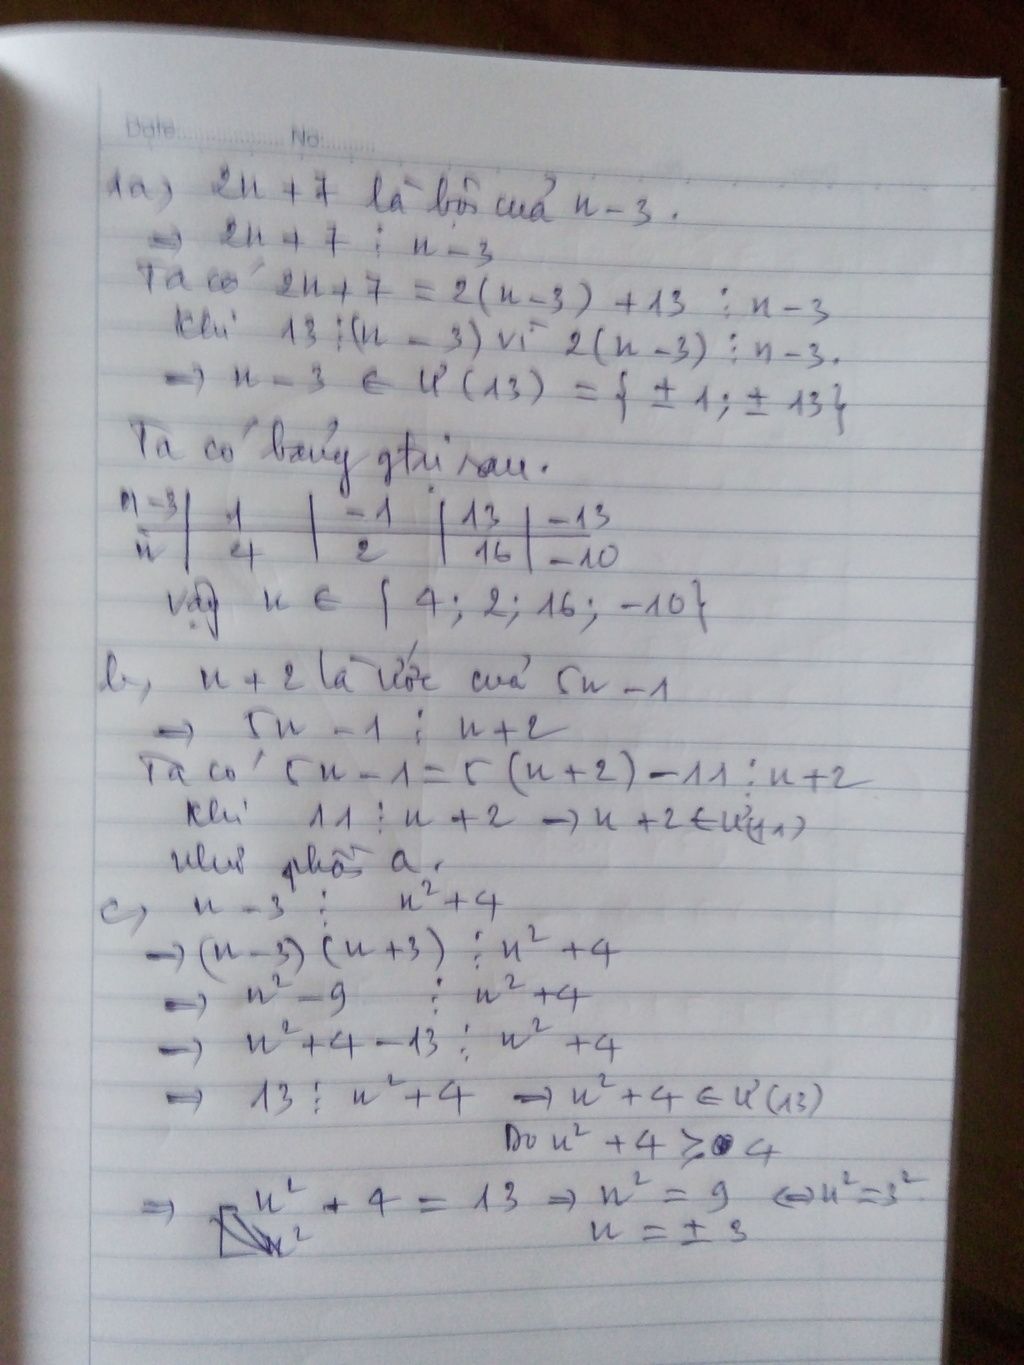 Date: No:
1a, 2n + 7 là bội của n - 3.
=> 2n + 7 ⋮ n - 3
Ta có 2n + 7 = 2(n - 3) + 13 ⋮ n - 3
Khi 13 ⋮ (n - 3) vì 2(n - 3) ⋮ n - 3.
=> n - 3 ∈ Ư(13) = { ± 1; ± 13}
Ta có bảng gtrị sau.
n - 3 | 1 | -1 | 13 | -13
n | 4 | 2 | 16 | -10
Vậy n ∈ { 4; 2; 16; -10}
b, n + 2 là ước của 5n - 1
=> 5n - 1 ⋮ n + 2
Ta có 5n - 1 = 5(n + 2) - 11 ⋮ n + 2
Khi 11 ⋮ n + 2 => n + 2 ∈ Ư(11)
Như phần a.
c, n - 3 ⋮ n² + 4
=> (n - 3)(n + 3) ⋮ n² + 4
=> n² - 9 ⋮ n² + 4
=> n² + 4 - 13 ⋮ n² + 4
=> 13 ⋮ n² + 4 => n² + 4 ∈ Ư(13)
Do n² + 4 ≥ 4
=> n² + 4 = 13 => n² = 9 <=> n² = 3²
n² n = ± 3